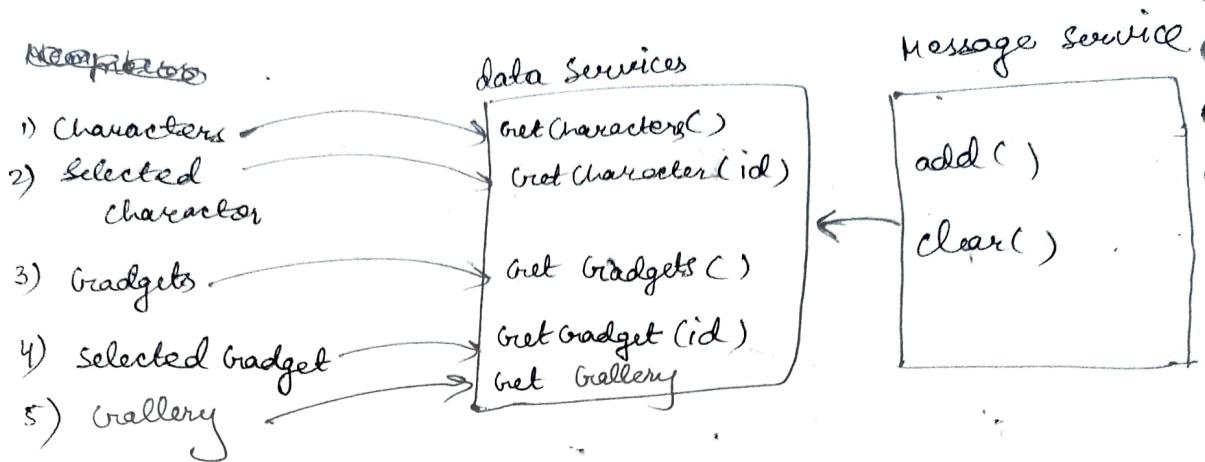 1) Characters
2) Selected
Character
3) Gadgets
4) Selected Gadget
5) Gallery
data Services
Get Characters()
Get Character (id)
Get Gadgets ()
Get Gadget (id)
Get Gallery
Message Service
add ( )
clear( )